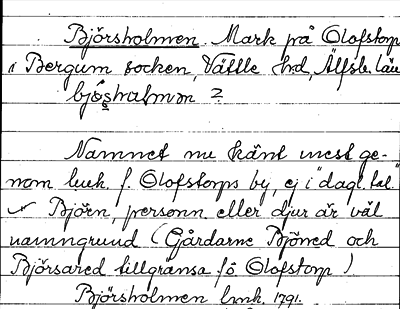 Björsholmen. Mark på Olofstorp
i Bergum socken, Vättle hrd, Älfsb. län
bjö̀sholmən ?
Namnet nu känt mest ge-
nom luuk. f. Olofstorps by, ej i "dagl. tal."
Björn, personn. eller djur är väl
namngrund (Gårdarne Bjöned och
Björsared tillgränsa fö Olofstorp)
Björsholmen hmk. 1791.